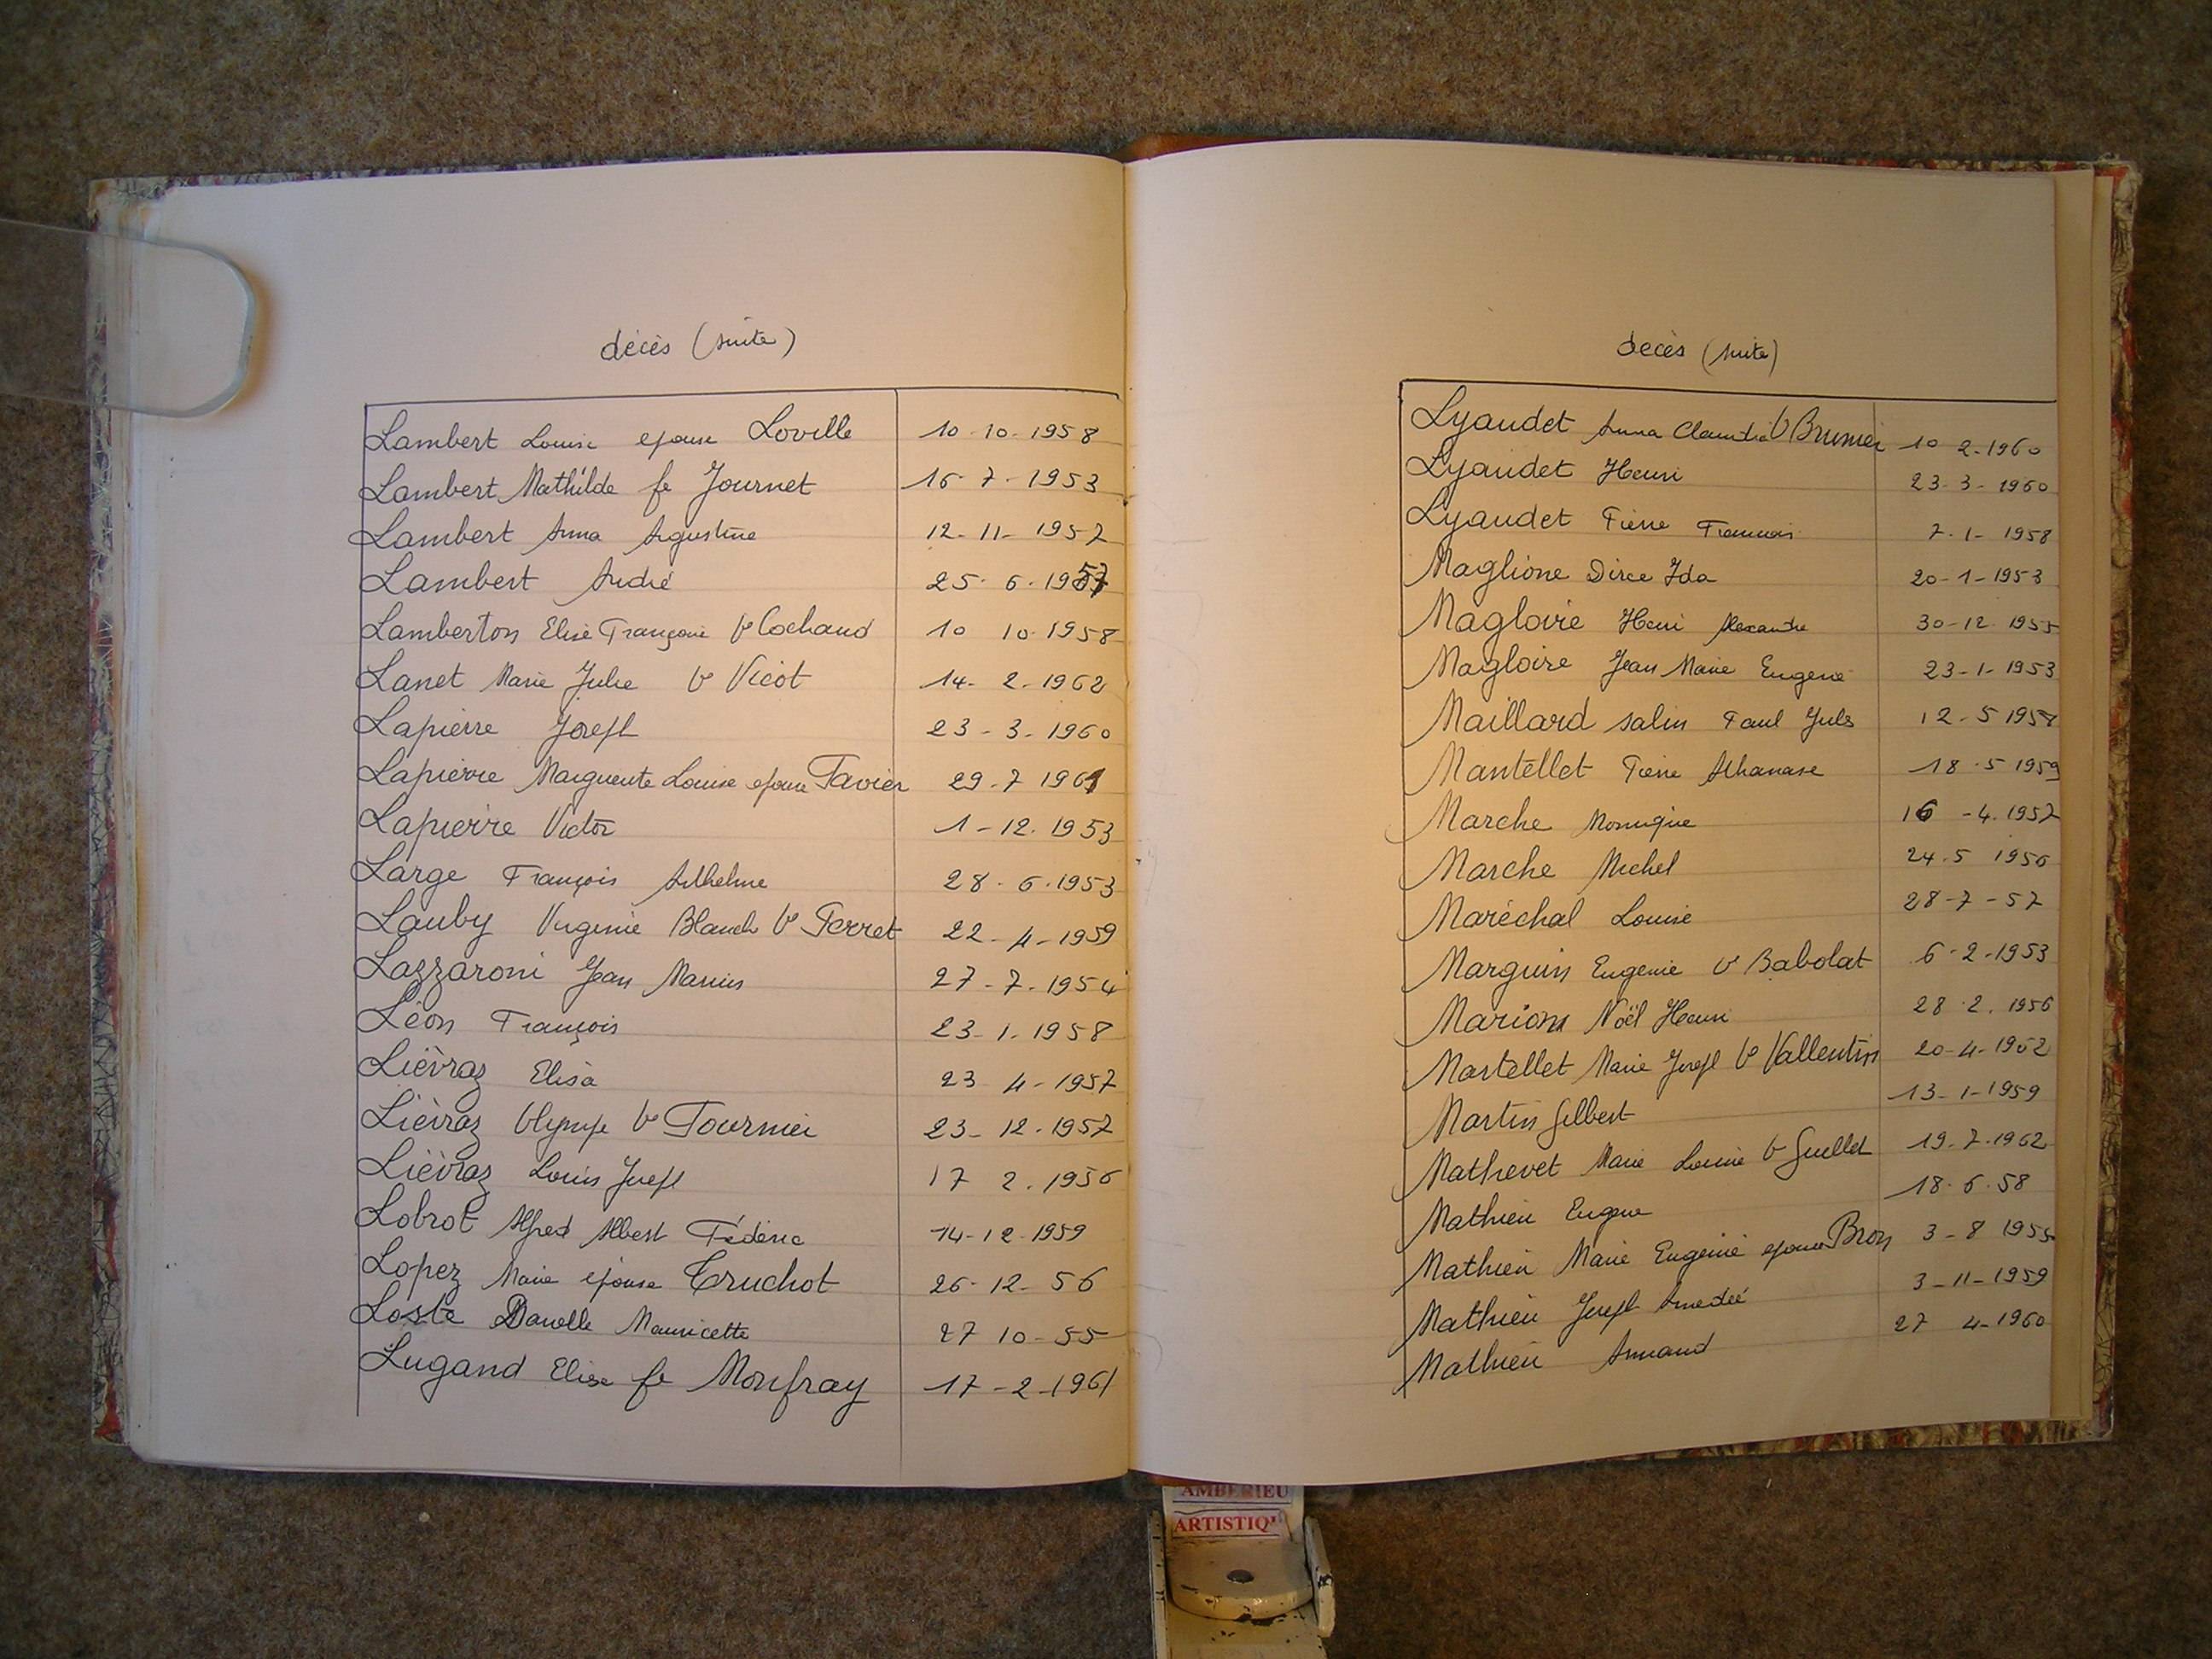 décès (suite)
Lambert Louise epouse Loville 10-10-1958
Lambert Mathilde fe Journet 16-7-1953
Lambert Anna Augustine 12-11-1957
Lambert André 25-6-1957
Lamberton Elise Françoise Ve Cochaud 10 10-1958
Lanet Marie Julie Ve Vicot 14-2-1962
Lapierre Joseph 23-3-1960
Lapierre Marguerite Louise epouse Tavier 29-7 1961
Lapierre Victor 1-12-1953
Large François Anthelme 28-6-1953
Lauby Virginie Blanche Ve Perret 22-4-1959
Lazzaroni Jean Marius 27-7-1954
Léon François 23-1-1958
Lièvraz Elisa 23 4-1957
Lièvraz Olympe Ve Fournier 23-12-1957
Lièvraz Louis Joseph 17 2.1956
Lobrot Alfred Albert Fédéric 14-12-1959
Lopez Marie épouse Truchot 26-12-56
Loste Danielle Mauricette 27 10-55
Lugand Elise fe Monfray 17-2-1961
décès (suite)
Lyaudet Anna Claudia Ve Brunier 10 2-1960
Lyaudet Henri 23-3-1960
Lyaudet Pierre François 7-1-1958
Maglione Dirce Ida 20-1-1953
Magloire Henri Alexandre 30-12 1955
Magloire Jean Marie Eugene 23-1-1953
Maillard salin Paul Jules 12-5 1958
Mantellet Pierre Athanase 18-5 1959
Marche Monique 16-4.1957
Marche Michel 24.5 1956
Maréchal Louise 28-7-57
Marguin Eugenie Ve Babolat 6-2-1953
Marion Noël Henri 28 2.1956
Martellet Marie Joseph Ve Vallentin 20-4-1962
Martin Gilbert 13-1-1959
Mathevet Marie Louise Ve Guillet 19-7-1962
Mathieu Eugene 18-6-58
Mathieu Marie Eugenie epouse Bron 3-8 1955
Mathieu Joseph Amedée 3-11-1959
Mathieu Armand 27 4-1960
AMBERIEU
ARTISTIQ